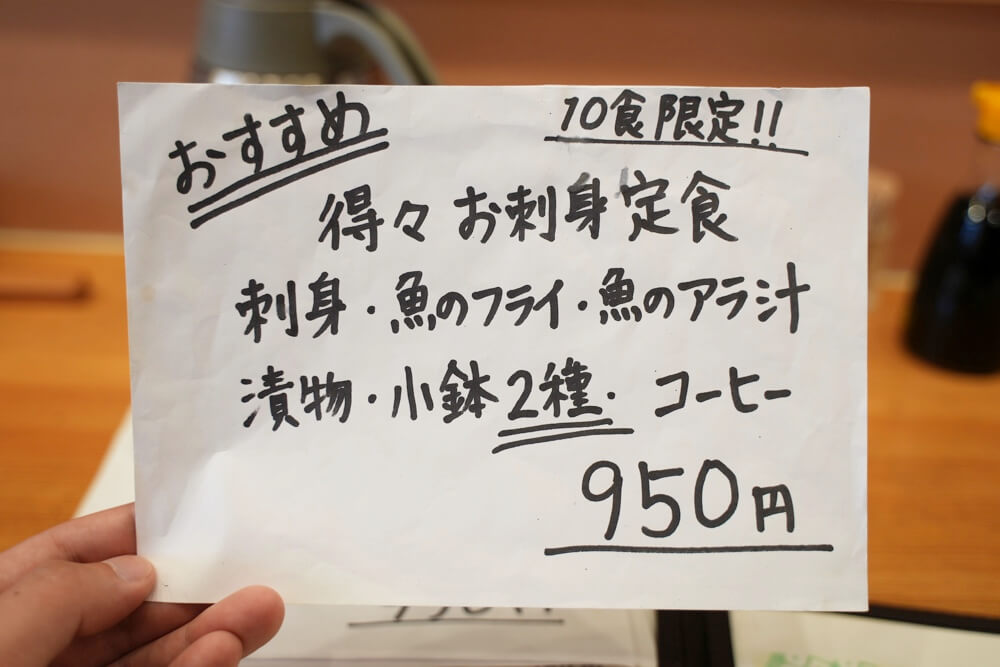 おすすめ
10食限定!!
得々お刺身定食
刺身・魚のフライ・魚のアラ汁
漬物・小鉢2種・コーヒー
950円